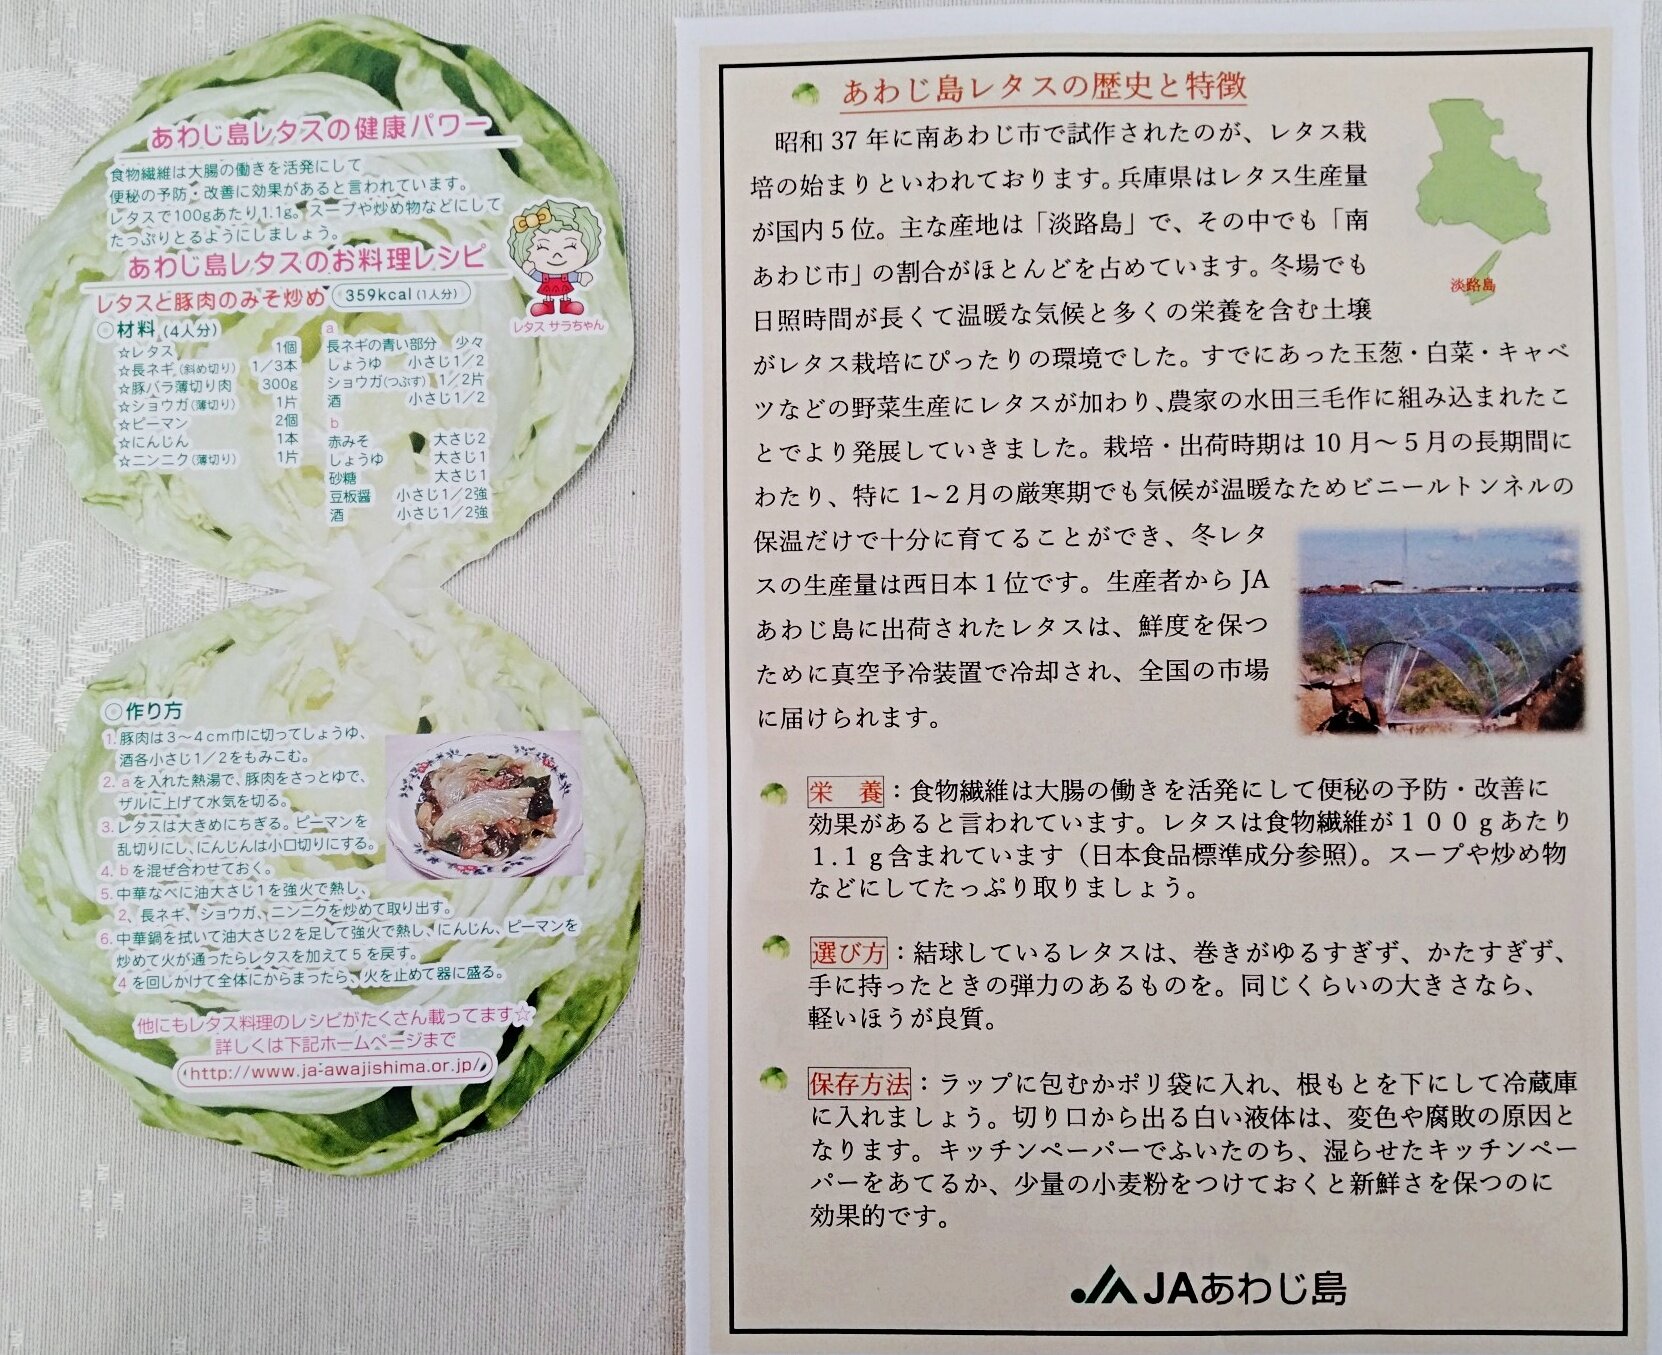 あわじ島レタスの健康パワー
食物繊維は大腸の働きを活発にして
便秘の予防・改善に効果があると言われています。
レタスで100gあたり1.1g。スープや炒め物などにして
たっぷりとるようにしましょう。
あわじ島レタスのお料理レシピ
レタスと豚肉のみそ炒め 359kcal(1人分)
◎材料(4人分)
☆レタス 1個
☆長ネギ(斜め切り) 1/3本
☆豚バラ薄切り肉 300g
☆ショウガ(薄切り) 1片
☆ピーマン 2個
☆にんじん 1本
☆ニンニク(薄切り) 1片
a
長ネギの青い部分 少々
しょうゆ 小さじ1/2
ショウガ(つぶす) 1/2片
酒 小さじ1/2
b
赤みそ 大さじ2
しょうゆ 大さじ1
砂糖 大さじ1
豆板醤 小さじ1/2強
酒 小さじ1/2強
レタス サラちゃん
◎作り方
1.豚肉は3〜4cm巾に切ってしょうゆ、
酒各小さじ1/2をもみこむ。
2.aを入れた熱湯で、豚肉をさっとゆで、
ザルに上げて水気を切る。
3.レタスは大きめにちぎる。ピーマンを
乱切りにし、にんじんは小口切りにする。
4.bを混ぜ合わせておく。
5.中華なべに油大さじ1を強火で熱し、
2、長ネギ、ショウガ、ニンニクを炒めて取り出す。
6.中華鍋を拭いて油大さじ2を足して強火で熱し、にんじん、ピーマンを
炒めて火が通ったらレタスを加えて5を戻す。
4を回しかけて全体にからまったら、火を止めて器に盛る。
他にもレタス料理のレシピがたくさん載ってます☆
詳しくは下記ホームページまで
http://www.ja-awajishima.or.jp/
あわじ島レタスの歴史と特徴
昭和37年に南あわじ市で試作されたのが、レタス栽
培の始まりといわれております。兵庫県はレタス生産量
が国内5位。主な産地は「淡路島」で、その中でも「南
あわじ市」の割合がほとんどを占めています。冬場でも
日照時間が長くて温暖な気候と多くの栄養を含む土壌
がレタス栽培にぴったりの環境でした。すでにあった玉葱・白菜・キャベ
ツなどの野菜生産にレタスが加わり、農家の水田三毛作に組み込まれたこ
とでより発展していきました。栽培・出荷時期は10月〜5月の長期間に
わたり、特に1~2月の厳寒期でも気候が温暖なためビニールトンネルの
保温だけで十分に育てることができ、冬レタ
スの生産量は西日本1位です。生産者からJA
あわじ島に出荷されたレタスは、鮮度を保つ
ために真空予冷装置で冷却され、全国の市場
に届けられます。
淡路島
栄 養：食物繊維は大腸の働きを活発にして便秘の予防・改善に
効果があると言われています。レタスは食物繊維が１００ｇあたり
１.１ｇ含まれています（日本食品標準成分参照）。スープや炒め物
などにしてたっぷり取りましょう。
選び方：結球しているレタスは、巻きがゆるすぎず、かたすぎず、
手に持ったときの弾力のあるものを。同じくらいの大きさなら、
軽いほうが良質。
保存方法：ラップに包むかポリ袋に入れ、根もとを下にして冷蔵庫
に入れましょう。切り口から出る白い液体は、変色や腐敗の原因と
なります。キッチンペーパーでふいたのち、湿らせたキッチンペー
パーをあてるか、少量の小麦粉をつけておくと新鮮さを保つのに
効果的です。
JAあわじ島